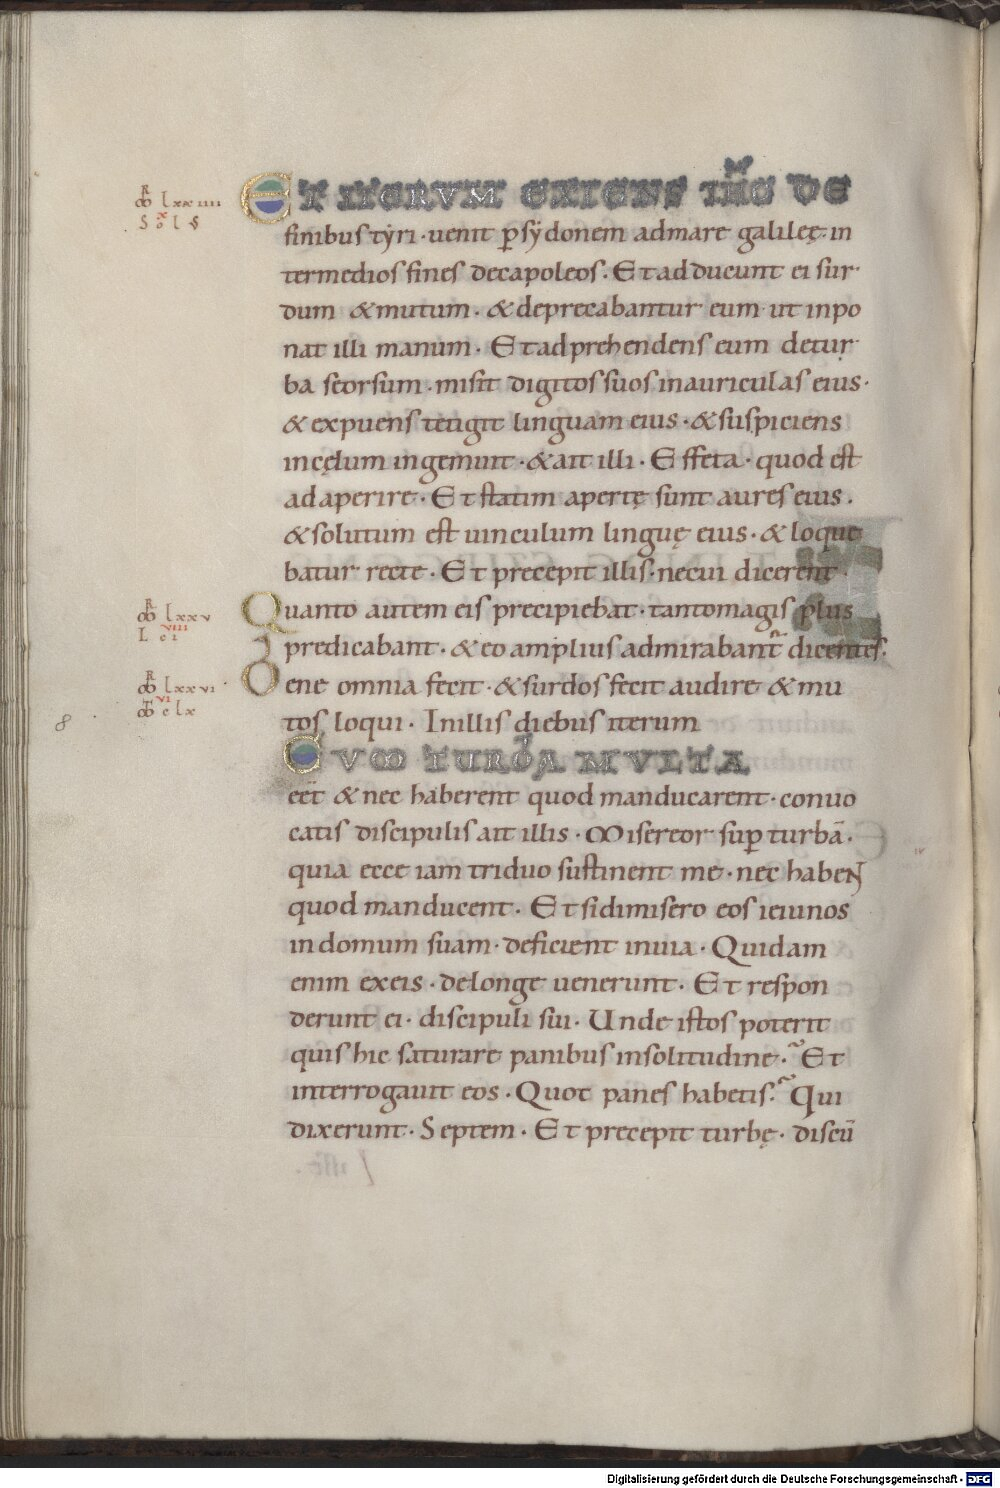 ET ITERUM EXIENS IHC DE
finibus tyri · uenit p̄ sydonem ad mare galileę · in
ter medios fines decapoleos · Et adducunt ei sur
dum & mutum · & deprecabantur eum ut inpo
nat illi manum · Et adprehendens eum de tur
ba seorsum · misit digitos suos in auriculas eius ·
& expuens tetigit linguam eius · & suspiciens
in cęlum ingemuit · & ait illi · Effeta · quod est
adaperire · Et statim apertę sunt aures eius ·
& solutum est uinculum linguę eius · & loque
batur recte · Et precepit illis · ne cui dicerent ·
Quanto autem eis precipiebat · tanto magis plus
predicabant · & eo amplius admirabant̃ dicentes ·
Bene omnia fecit · & surdos fecit audire & mu
tos loqui · In illis diebus iterum
CUM TURBA MULTA
eet̄ & nec haberent quod manducarent · conuo
catis discipulis ait illis · Misereor sup̄ turbā ·
quia ecce iam triduo sustinent me · nec habeN̄
quod manducent · Et si dimisero eos ieiunos
in domum suam · deficient in uia · Quidam
enim ex eis · de longe uenerunt · Et respon
derunt ei · discipuli sui · Unde istos poterit
quis hic saturare panibus in solitudine · Et
interrogauit eos · Quot panes habetis · Qui
dixerunt · Septem · Et precepit turbę · discū
R lxxiiii
R lxxv
L
viii
R lxxvi
vi
8
Digitalisierung gefördert durch die Deutsche Forschungsgemeinschaft - DFG